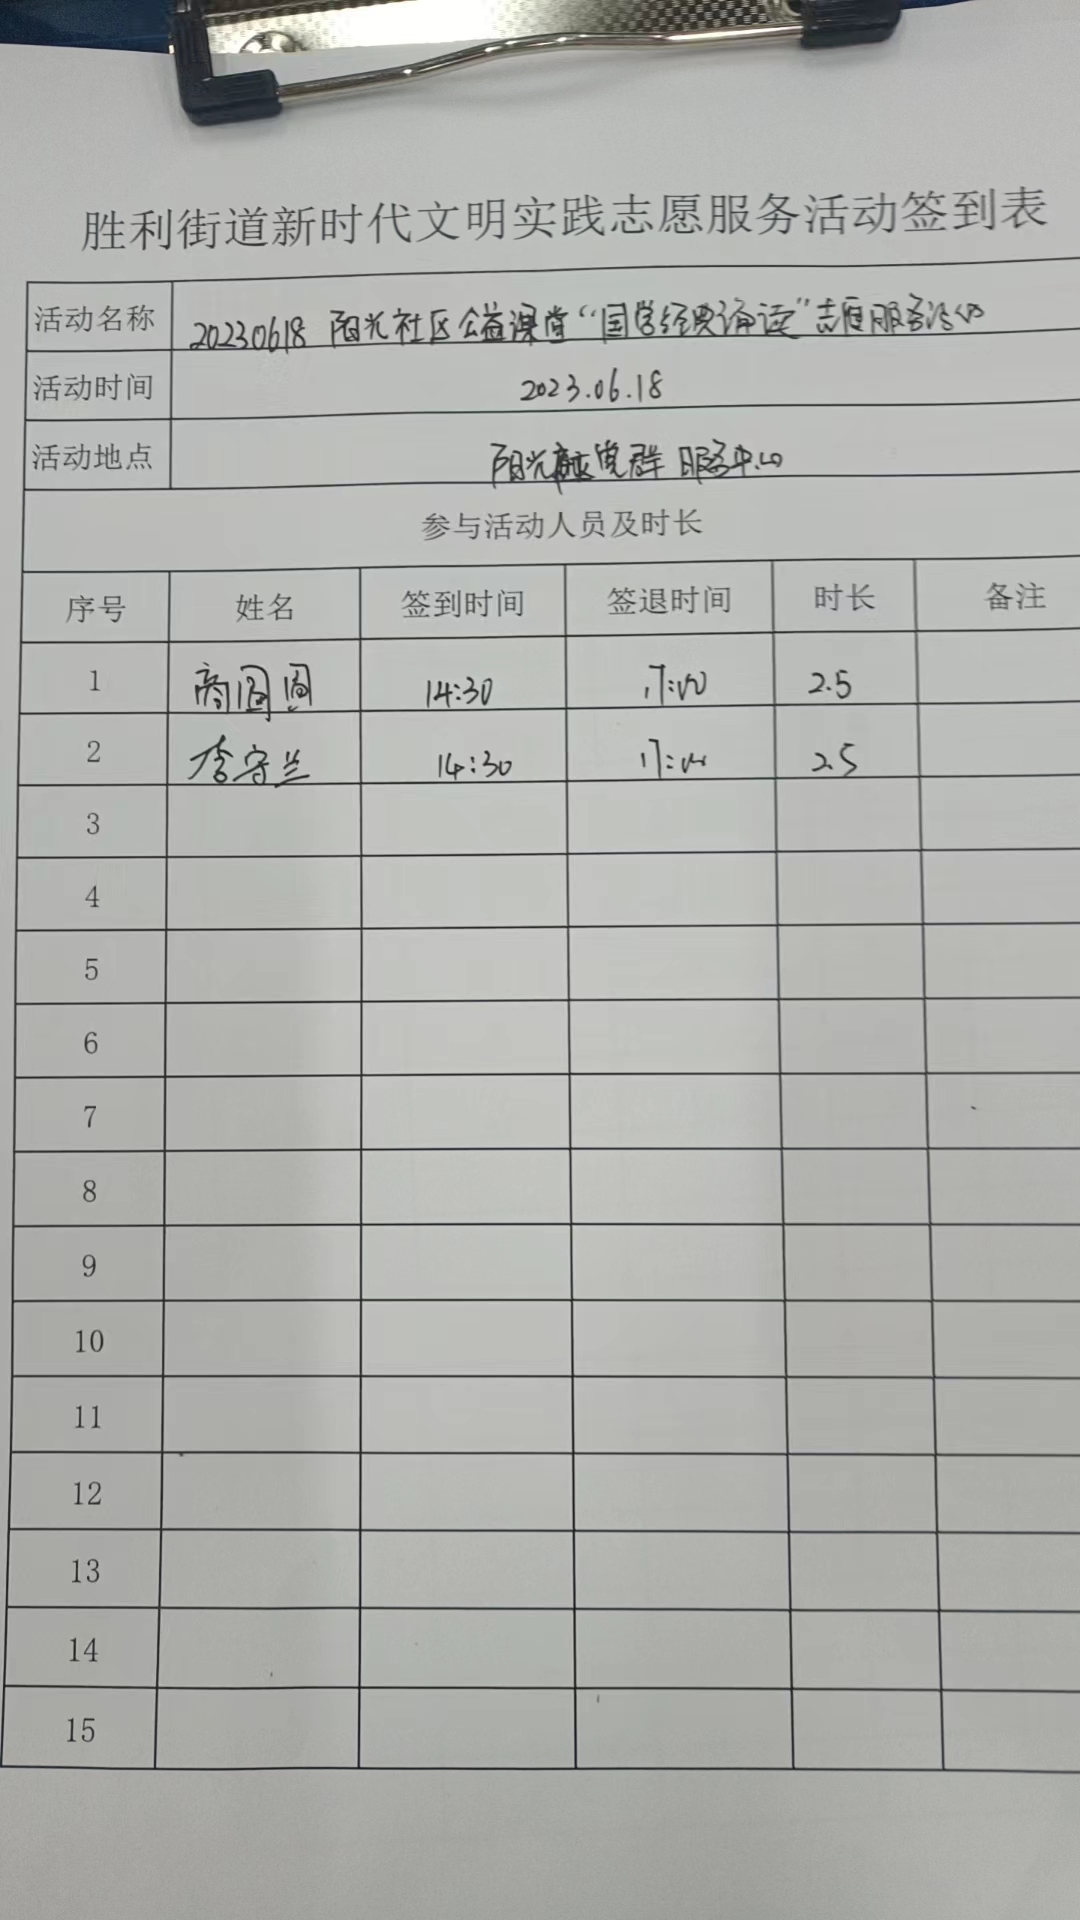 胜利街道新时代文明实践志愿服务活动签到表
活动名称 20230618 阳光社区公益课堂“国学经典诵读”志愿服务活动
活动时间 2023.06.18
活动地点 阳光 党群服务中心
参与活动人员及时长
序号 姓名 签到时间 签退时间 时长 备注
1 商圆圆 14:30 17:00 2.5
2 李守兰 14:30 17:00 2.5
3
4
5
6
7
8
9
10
11
12
13
14
15